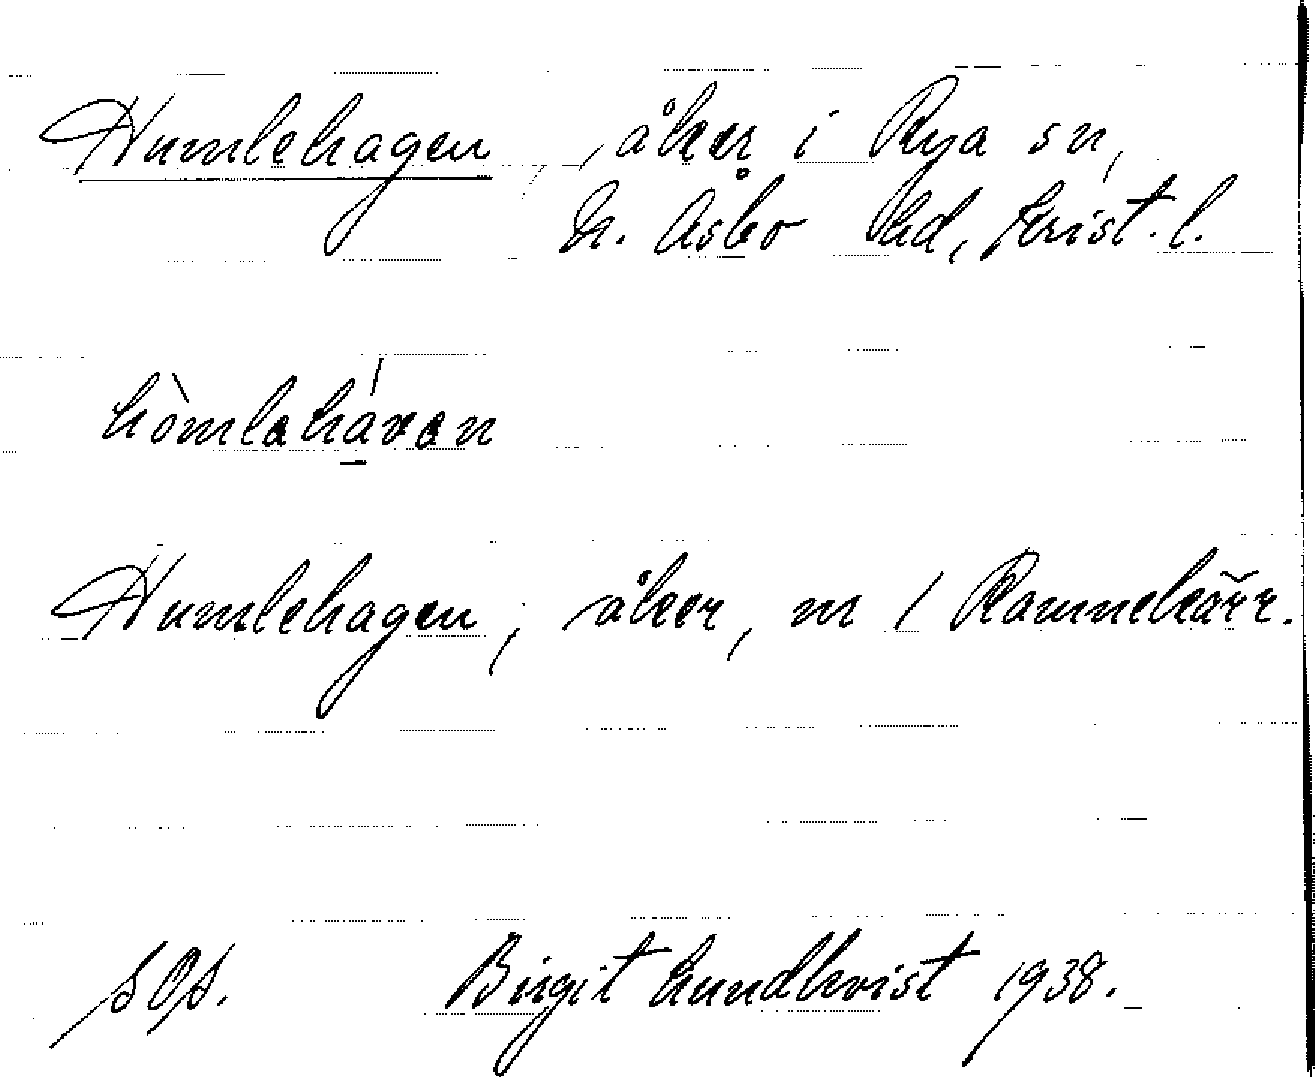 Humlehagen, åker i Rya sn,
N. Åsbo hd, Krist. l.
hòmləhávən
Humlehagen, åker, m / Ramnekärr.
SOS. Birgit Lundkvist 1938.